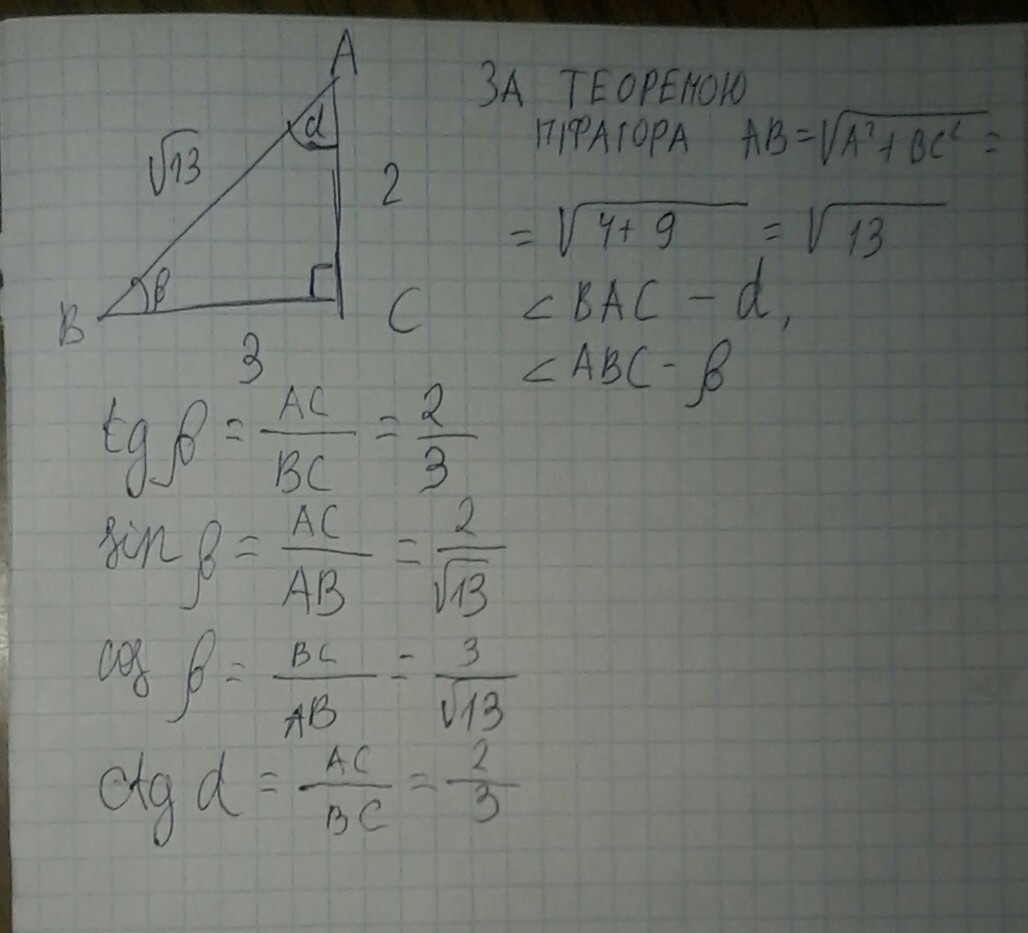 A
√13
α
2
B
β
C
3
ЗА ТЕОРЕМОЮ
ПІФАГОРА AB=√A²+BC² =
= √4+9 = √13
∠BAC - α,
∠ABC - β
tg β = AC/BC = 2/3
sin β = AC/AB = 2/√13
cos β = BC/AB = 3/√13
ctg α = AC/BC = 2/3